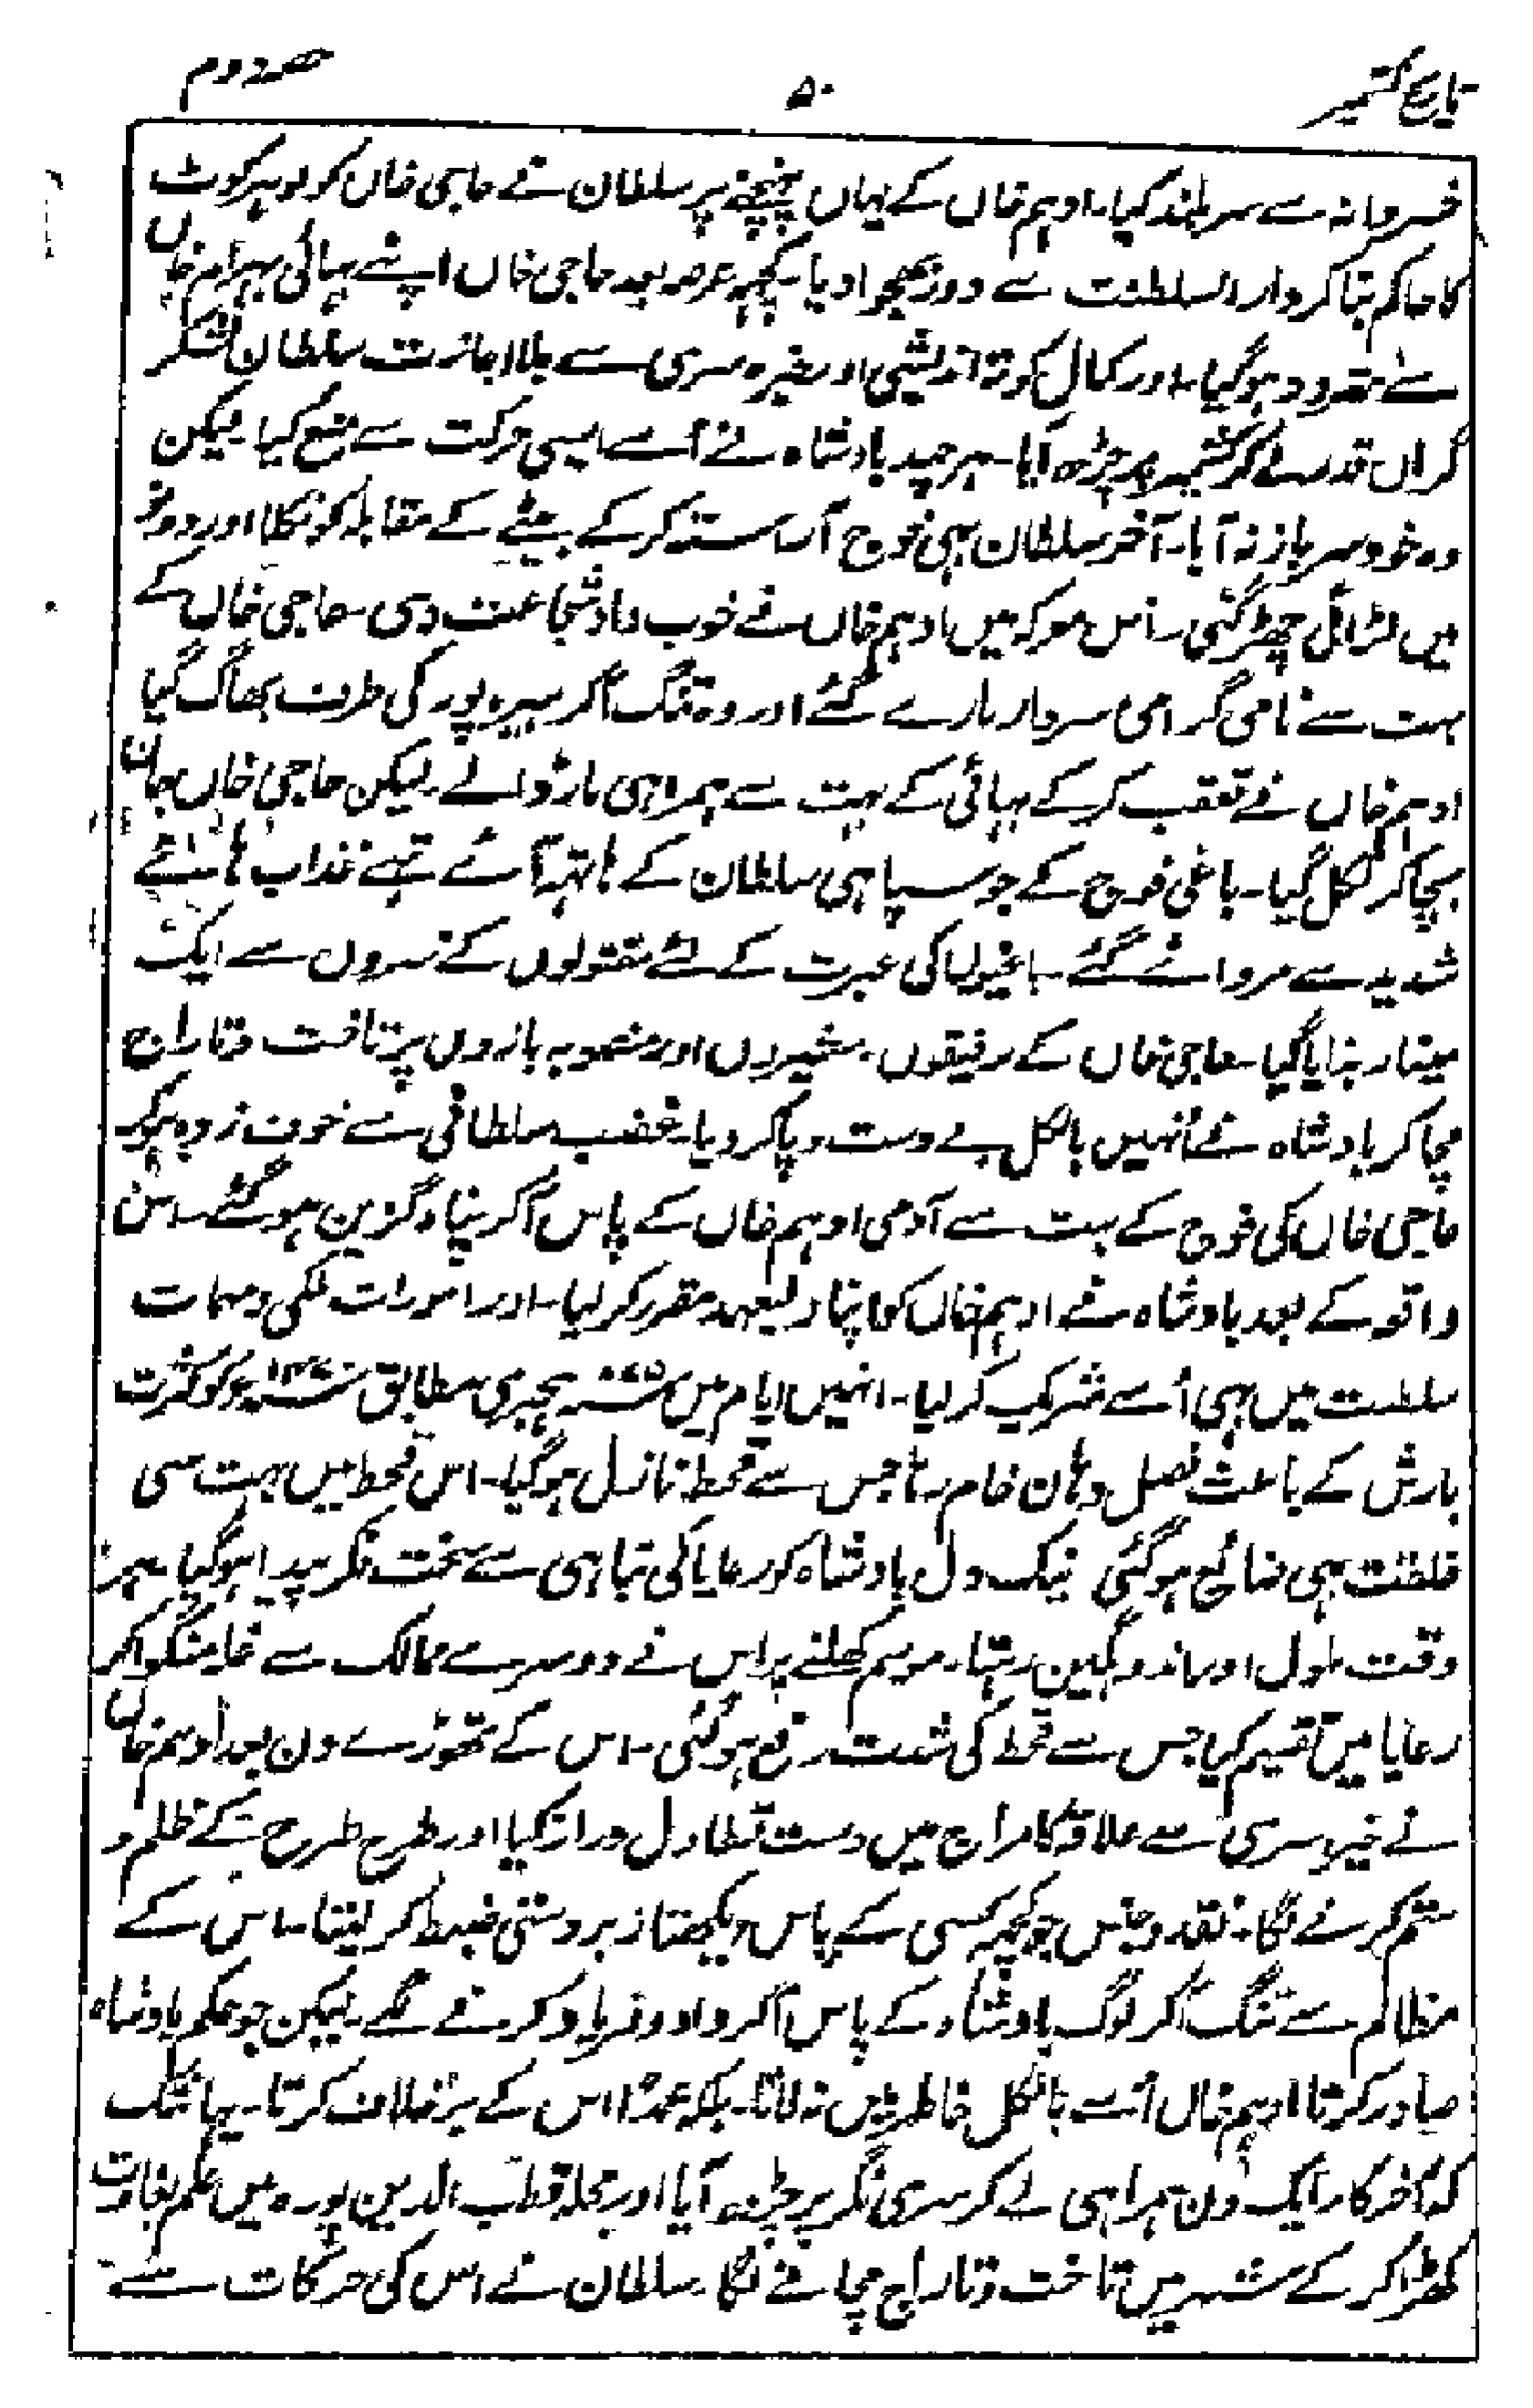 تاریخ کشمیر
۵۰
حصہ دوم
خسروانہ سے سربلند کیا۔ ادہم خاں کے یہاں پہنچنے پر سلطان نے حاجی خاں کو لوہر کوٹ
کا حاکم بنا کر دارالسلطنت سے دور بھجوا دیا۔ کچہہ عرصہ بعد حاجی خاں اپنے بہائی بہرام خاں
سے متردد ہو گیا۔ اور کمال کوتہ اندیشی اور خیرہ سری سے بلا اجازت سلطان لشکر
گراں قدر لے کر کشمیر پر چڑھ آیا۔ ہر چند بادشاہ نے اُسے ایسی حرکت سے منع کیا۔ لیکن
وہ خود سر باز نہ آیا۔ آخر سلطان بہی فوج آراستہ کر کے بیٹے کے مقابلہ کو نکلا اور دونو
میں لڑائی چھڑ گئی۔ اس معرکہ میں ادہم خاں نے خوب داد شجاعت دی۔ حاجی خاں کے
بہت سے نامی گرامی سردار مارے گئے اور وہ تنگ آکر ہیرہ پور کی طرف بھاگ گیا
ادہم خاں نے تعقب کر کے بہائی کے بہت سے ہمراہی مار ڈالے۔ لیکن حاجی خاں جان
بچا کر نکل گیا۔ باغی فوج کے جو سپاہی سلطان کے ہاتہہ آئے تہے عذاب ہائے
شدید سے مروائے گئے۔ باغیوں کی عبرت کے لئے مقتولوں کے سروں سے ایک
مینار بنایا گیا۔ حاجی خاں کے رفیقوں۔ مشیروں اور منصوبہ بازوں پر تاخت و تاراج
مچا کر بادشاہ نے اُنہیں بالکل بے دست و پا کر دیا۔ غضب سلطانی سے خوف زدہ ہو کر
حاجی خاں کی فوج کے بہت سے آدمی ادہم خاں کے پاس آکر پناہ گزین ہو گئے۔ اس
واقعہ کے بعد بادشاہ نے ادہم خاں کو اپنا ولیعہد مقرر کر لیا۔ اور امورات ملکی و مہمات
سلطنت میں بہی اُسے شریک کر لیا۔ انہیں ایام میں ہجری مطابق کو کثرت
بارش کے باعث فصل دہان خام رہا جس سے قحط نازل ہو گیا۔ اس قحط میں بہت سی
خلقت بہی ضائع ہو گئی نیک دل بادشاہ کو رعایا کی تباہی سے سخت فکر پیدا ہو گیا۔ ہر
وقت ملول اور اندوہگین رہتا۔ موسم کھلنے پر اس نے دوسرے ممالک سے غلہ منگوا کر
رعایا میں تقسیم کیا جس سے قحط کی شدت رفع ہو گئی۔ اس کے تھوڑے دن بعد ادہم خاں
نے خیرہ سری سے علاقہ کامراج میں دست تطاول دراز کیا اور طرح طرح کے ظلم و
ستم کرنے لگا۔ نقد و جنس جو کچہہ کسی کے پاس دیکھتا زبردستی ضبط کر لیتا۔ اس کے
مظالم سے تنگ آکر لوگ بادشاہ کے پاس آکر داد و فریاد کرنے لگے۔ لیکن جو حکم بادشاہ
صادر کرتا ادہم خاں اُسے بالکل خاطر میں نہ لاتا۔ بلکہ عمداً اس کے برخلاف کرتا۔ یہانتک
کہ آخر کار ایک دن ہمراہی لے کر سری نگر پر چڑہہ آیا اور محلہ قطب الدین پورہ میں علم بغاوت
کھڑا کر کے شہر میں تاخت و تاراج مچانے لگا۔ سلطان نے اس کی حرکات سے